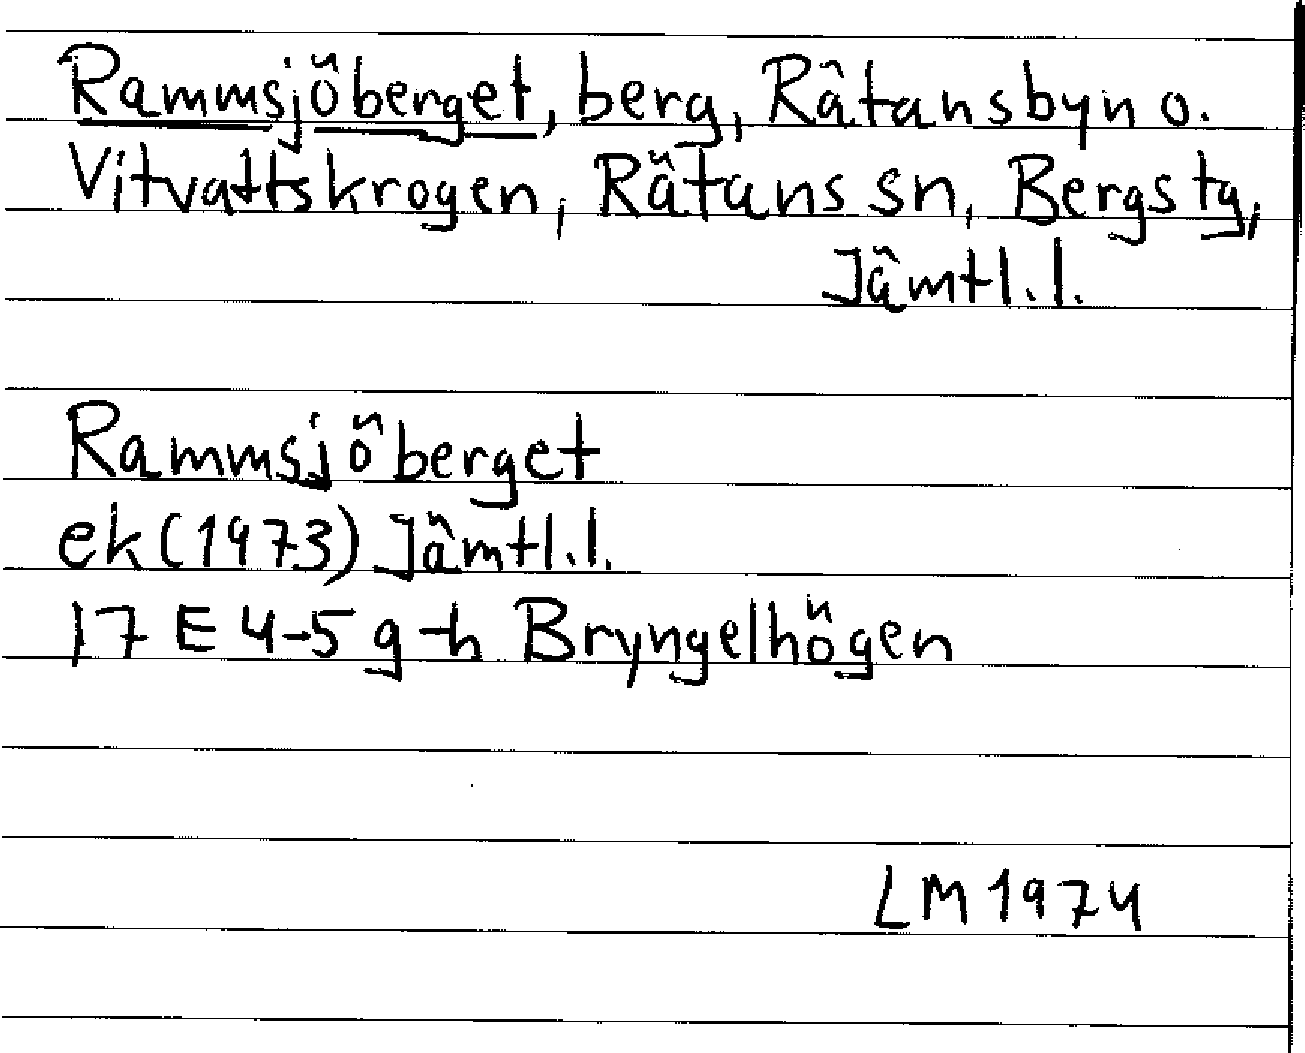 Rammsjöberget, berg, Rätansbyn o.
Vitvattskrogen, Rätans sn, Bergs tg,
Jämtl.l.
Rammsjöberget
ek (1973) Jämtl.l.
17 E 4-5 g-h Bryngelhögen
LM 1974